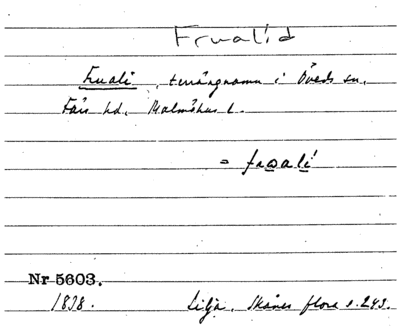 Frualid
Fruali, terrängnamn i Öveds sn,
Färs hd, Malmöhus l.
= frωalí
Nr 5603.
1838. Lilja, Skånes flora s. 243.